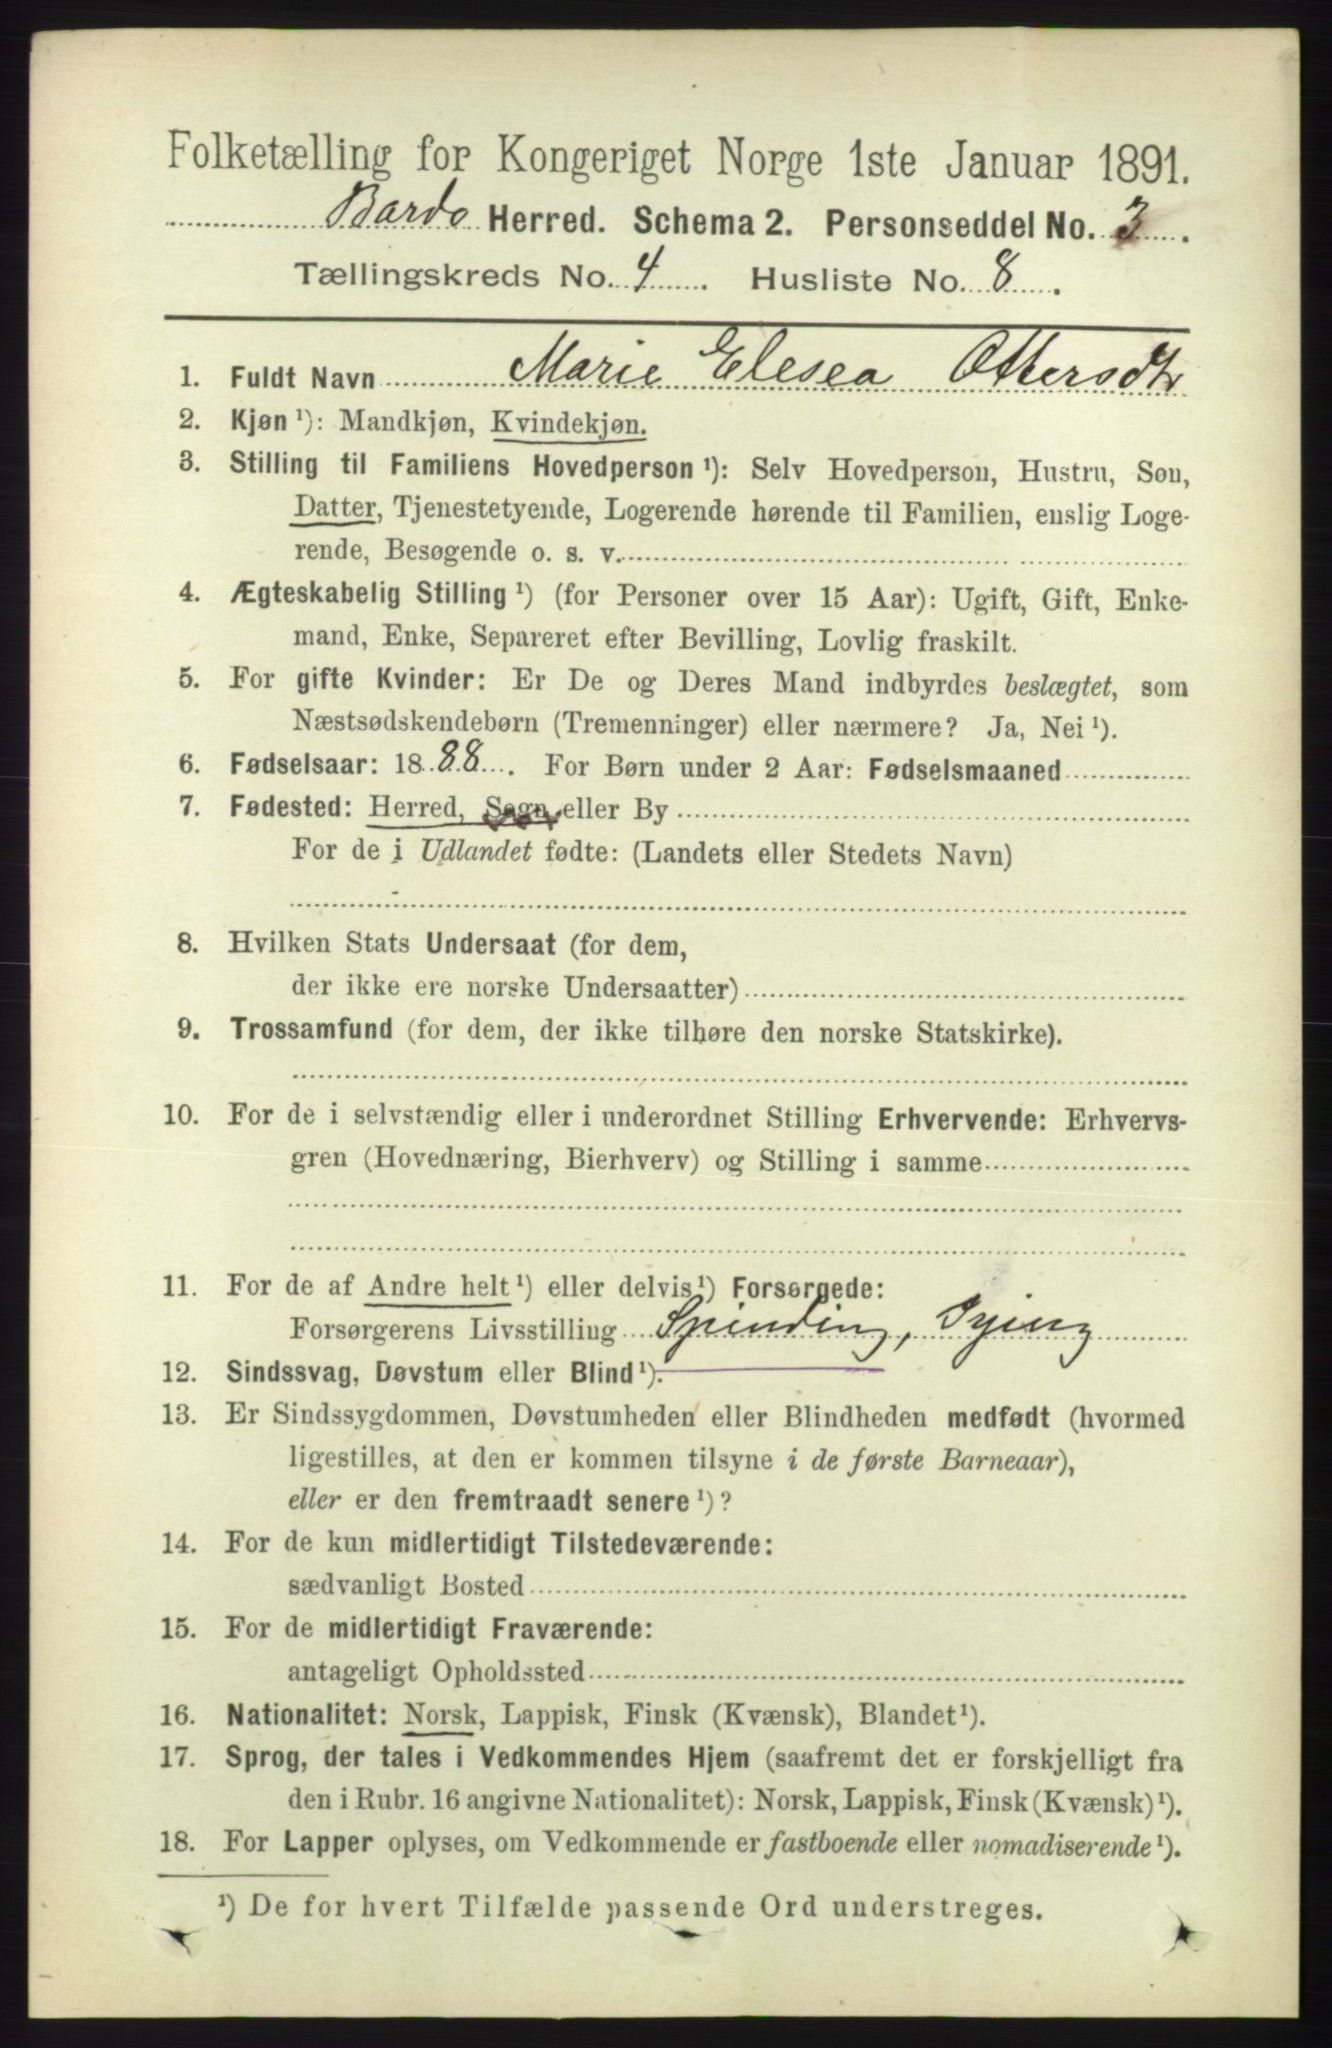 Folketælling for Kongeriget Norge 1ste Januar 1891.
Bardo Herred. Schema 2. Personseddel No. 3.
Tællingskreds No. 4. Husliste No. 8.
1. Fuldt Navn Marie Elesea Ottersdtr
2. Kjøn ¹): Mandkjøn, Kvindekjøn.
3. Stilling til Familiens Hovedperson ¹): Selv Hovedperson, Hustru, Søn,
Datter, Tjenestetyende, Logerende hørende til Familien, enslig Loge-
rende, Besøgende o. s. v.
4. Ægteskabelig Stilling ¹) (for Personer over 15 Aar): Ugift, Gift, Enke-
mand, Enke, Separeret efter Bevilling, Lovlig fraskilt.
5. For gifte Kvinder: Er De og Deres Mand indbyrdes beslægtet, som
Næstsødskendebørn (Tremenninger) eller nærmere? Ja, Nei ¹).
6. Fødselsaar: 1888. For Børn under 2 Aar: Fødselsmaaned
7. Fødested: Herred, Sogn eller By
For de i Udlandet fødte: (Landets eller Stedets Navn)
8. Hvilken Stats Undersaat (for dem,
der ikke ere norske Undersaatter)
9. Trossamfund (for dem, der ikke tilhøre den norske Statskirke).
10. For de i selvstændig eller i underordnet Stilling Erhvervende: Erhvervs-
gren (Hovednæring, Bierhverv) og Stilling i samme
11. For de af Andre helt ¹) eller delvis ¹) Forsørgede:
Forsørgerens Livsstilling Spinding, Sying
12. Sindssvag, Døvstum eller Blind ¹).
13. Er Sindssygdommen, Døvstumheden eller Blindheden medfødt (hvormed
ligestilles, at den er kommen tilsyne i de første Barneaar),
eller er den fremtraadt senere ¹)?
14. For de kun midlertidigt Tilstedeværende:
sædvanligt Bosted
15. For de midlertidigt Fraværende:
antageligt Opholdssted
16. Nationalitet: Norsk, Lappisk, Finsk (Kvænsk), Blandet ¹).
17. Sprog, der tales i Vedkommendes Hjem (saafremt det er forskjelligt fra
den i Rubr. 16 angivne Nationalitet): Norsk, Lappisk, Finsk (Kvænsk) ¹).
18. For Lapper oplyses, om Vedkommende er fastboende eller nomadiserende ¹).
¹) De for hvert Tilfælde passende Ord understreges.